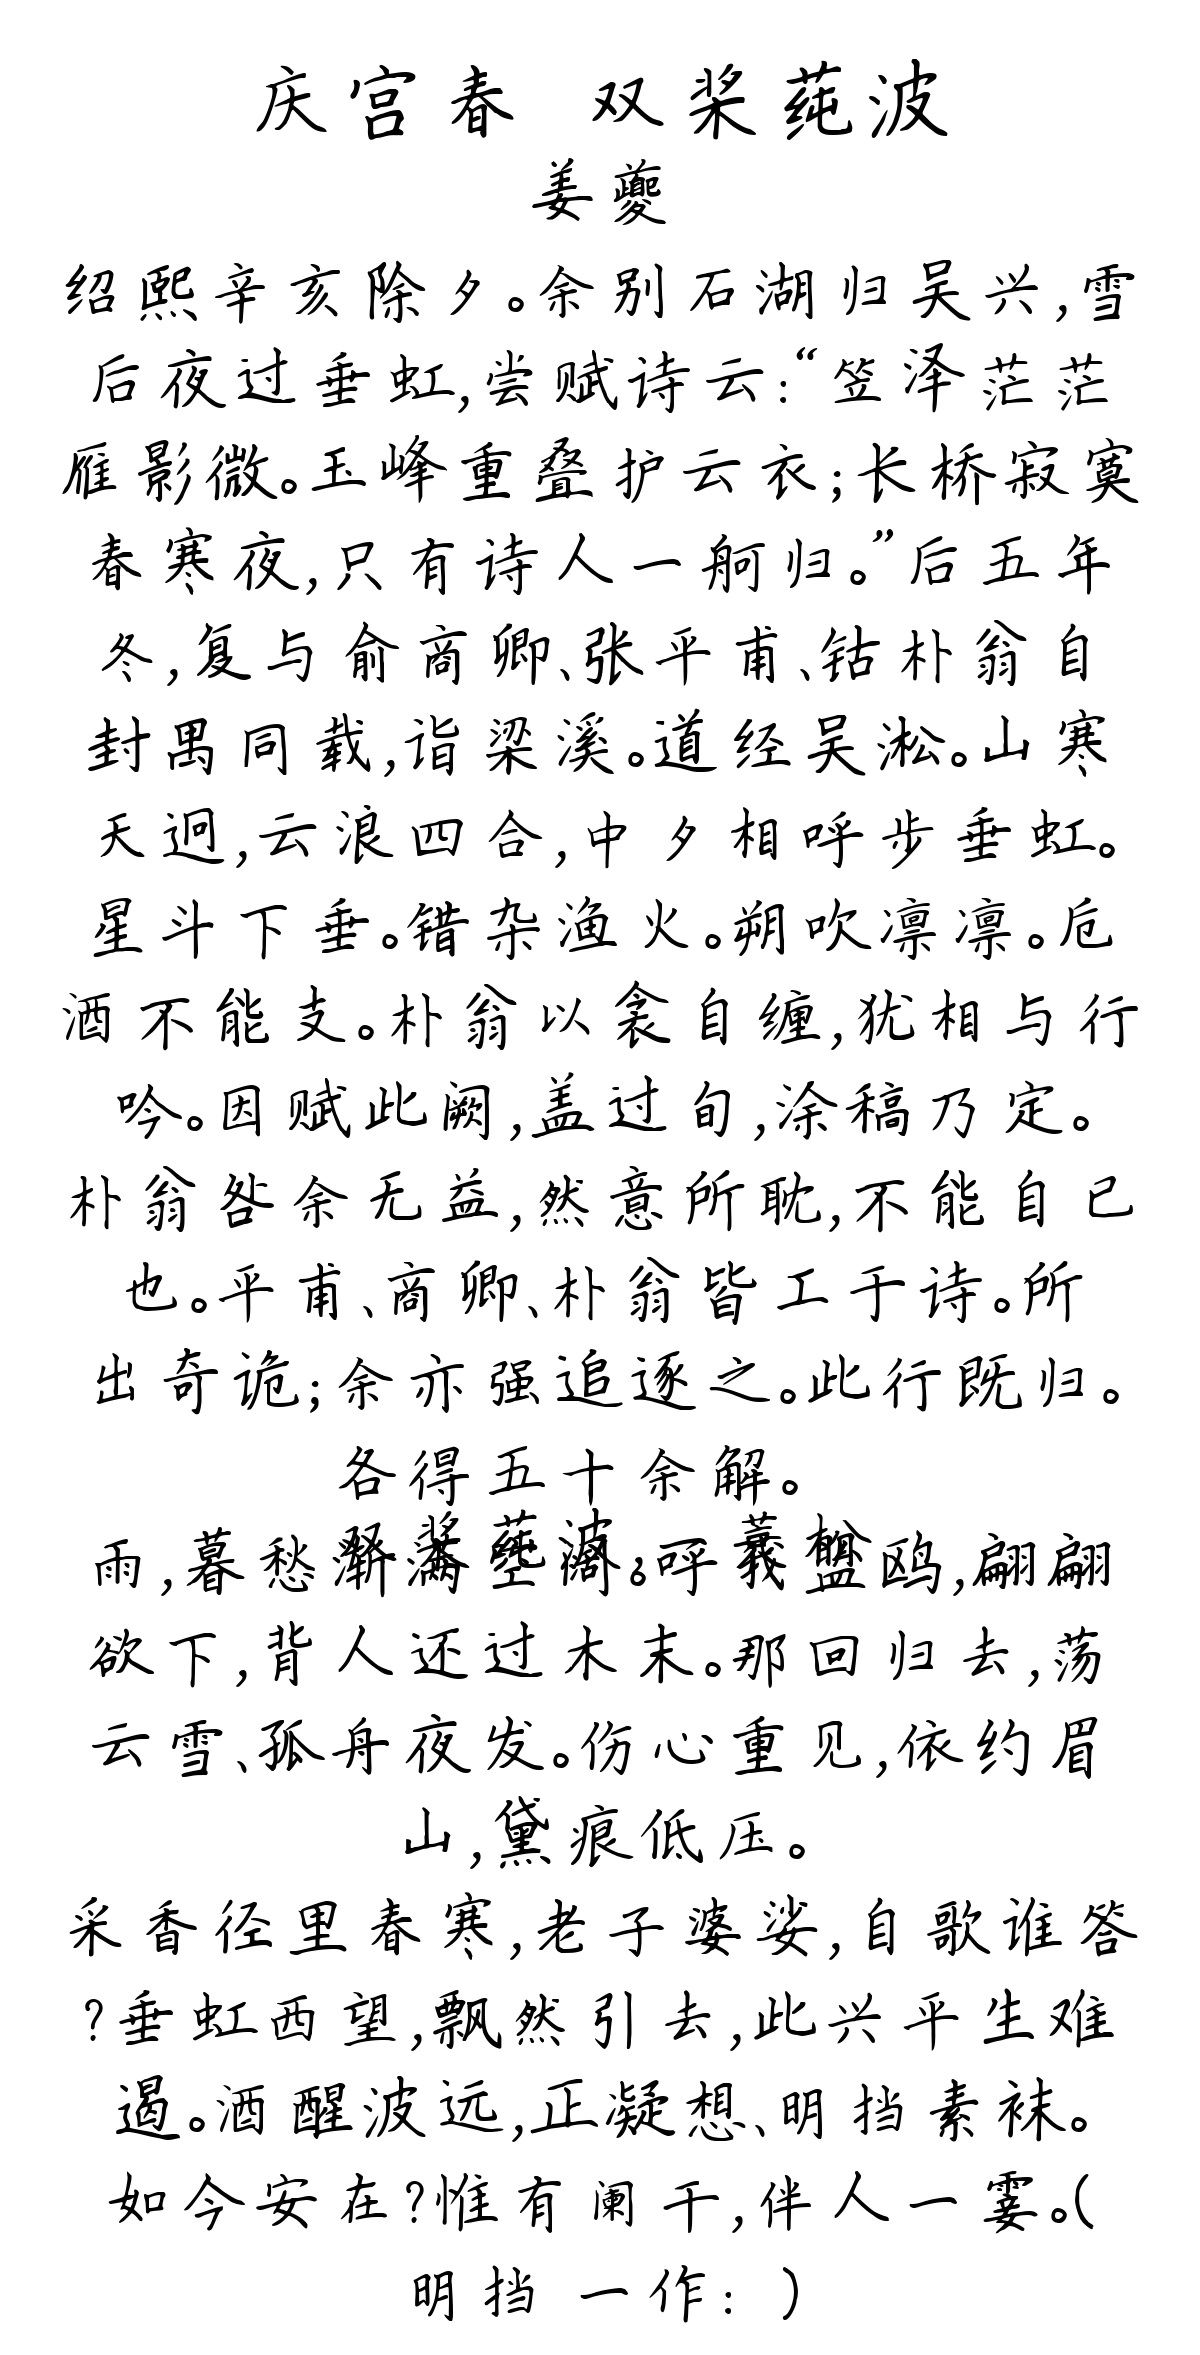 庆宫春 双桨莼波
姜夔
绍熙辛亥除夕。余别石湖归吴兴,雪
后夜过垂虹,尝赋诗云:“笠泽茫茫
雁影微。玉峰重叠护云衣;长桥寂寞
春寒夜,只有诗人一舸归。”后五年
冬,复与俞商卿、张平甫、钴朴翁自
封禺同载,诣梁溪。道经吴淞。山寒
天迥,云浪四合,中夕相呼步垂虹。
星斗下垂。错杂渔火。朔吹凛凛。卮
酒不能支。朴翁以衾自缠,犹相与行
吟。因赋此阙,盖过旬,涂稿乃定。
朴翁咎余无益,然意所耽,不能自已
也。平甫、商卿、朴翁皆工于诗。所
出奇诡;余亦强追逐之。此行既归。
各得五十余解。
双桨莼波,一蓑松
雨,暮愁渐满空阔。呼我盟鸥,翩翩
欲下,背人还过木末。那回归去,荡
云雪、孤舟夜发。伤心重见,依约眉
山,黛痕低压。
采香径里春寒,老子婆娑,自歌谁答
?垂虹西望,飘然引去,此兴平生难
遏。酒醒波远,正凝想、明挡素袜。
如今安在?惟有阑干,伴人一霎。(
明挡 一作: )